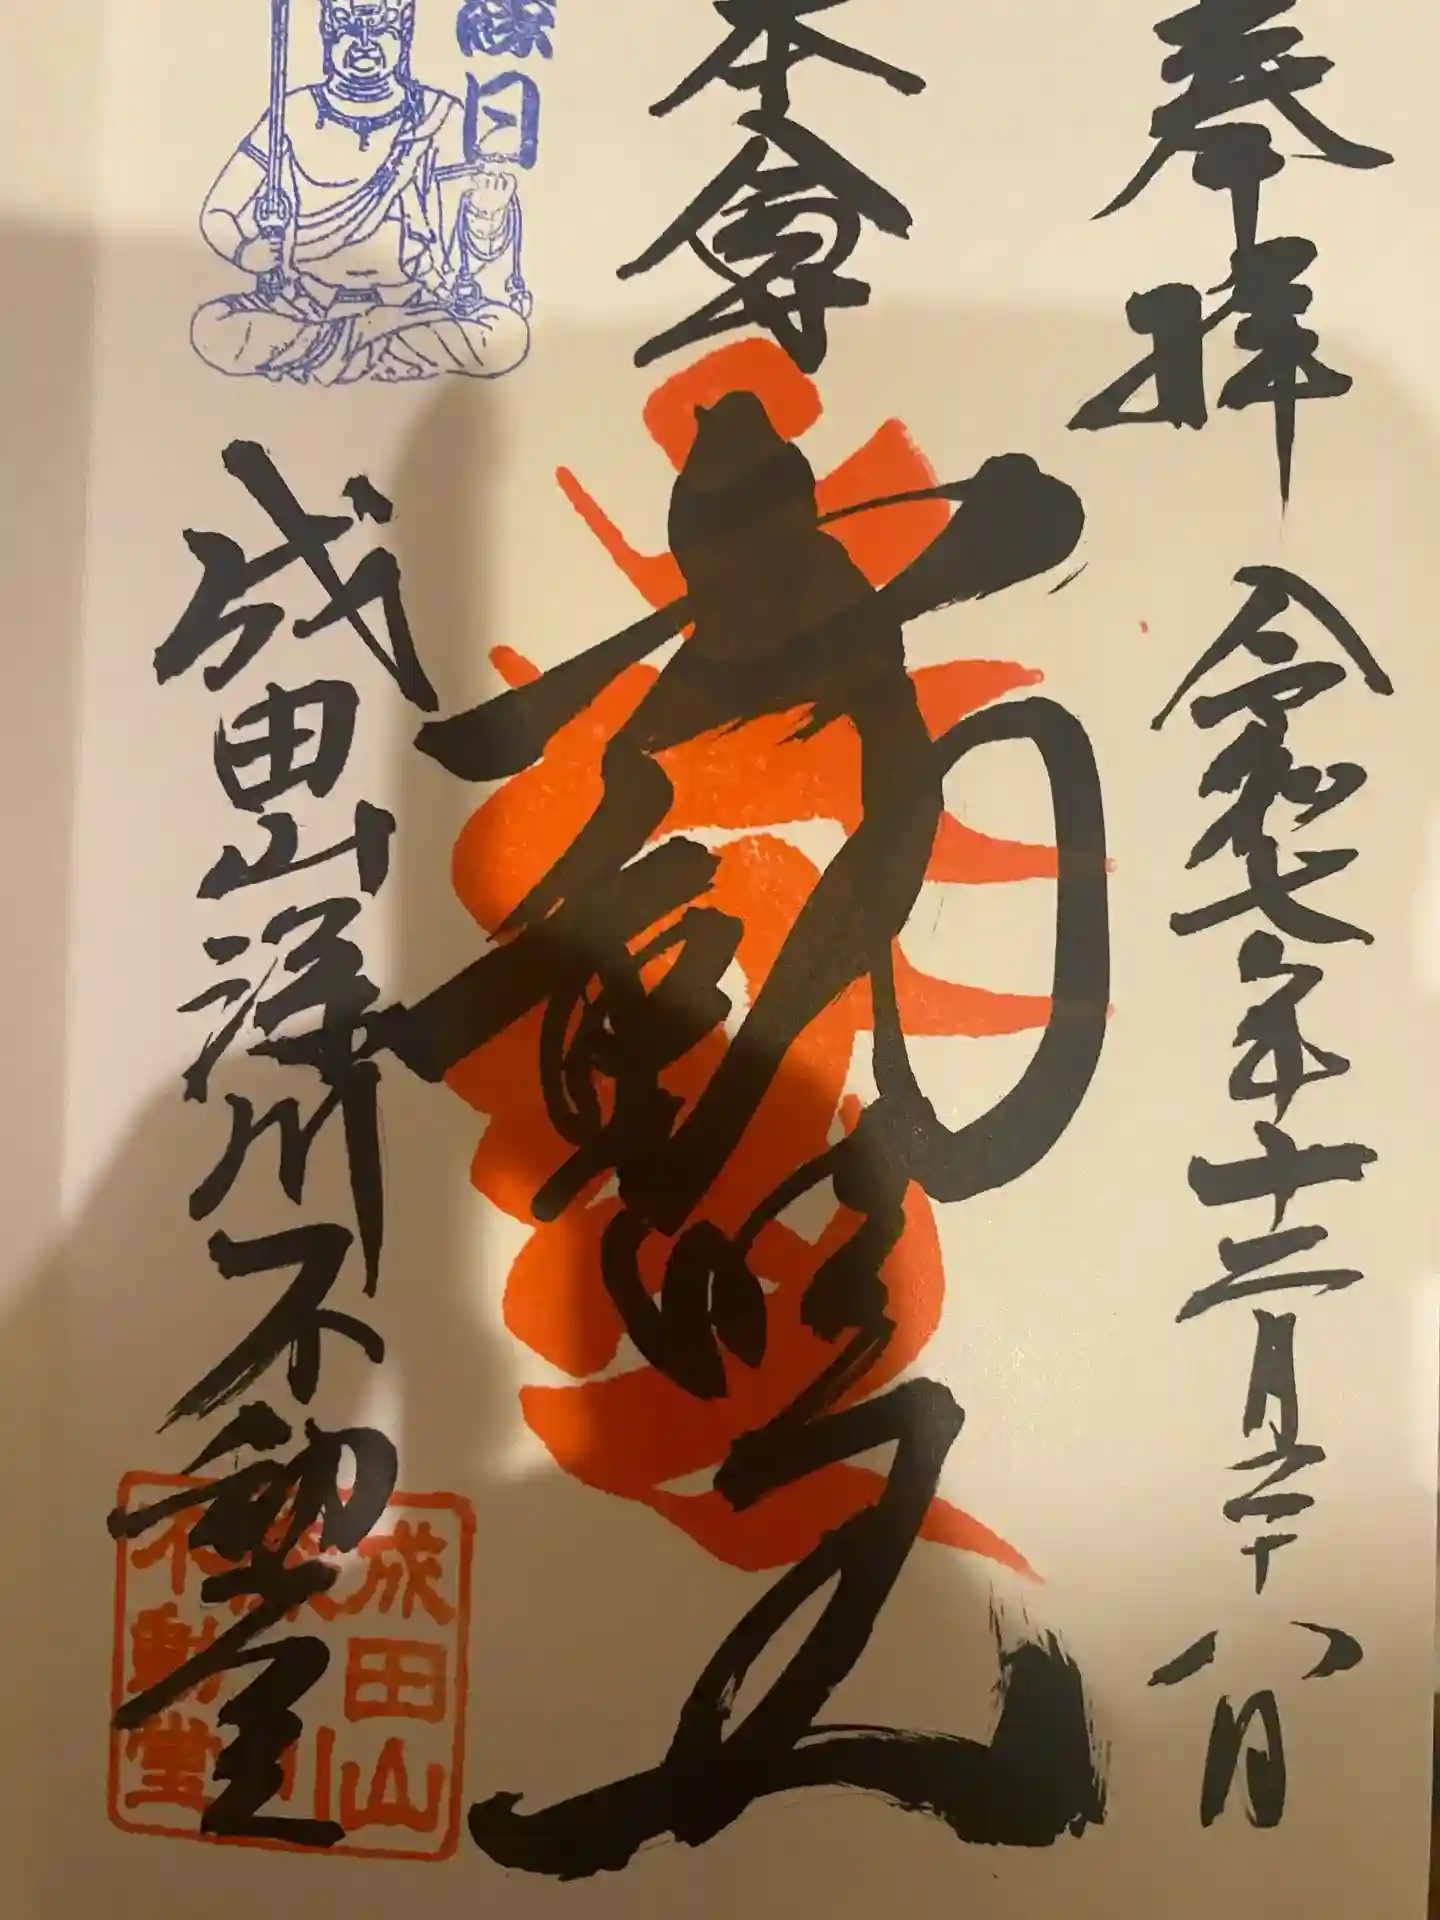 奉拝 令和七年十二月二十八日
本尊
不動明王
縁日
成田山深川不動堂
成田山
深川
不動堂